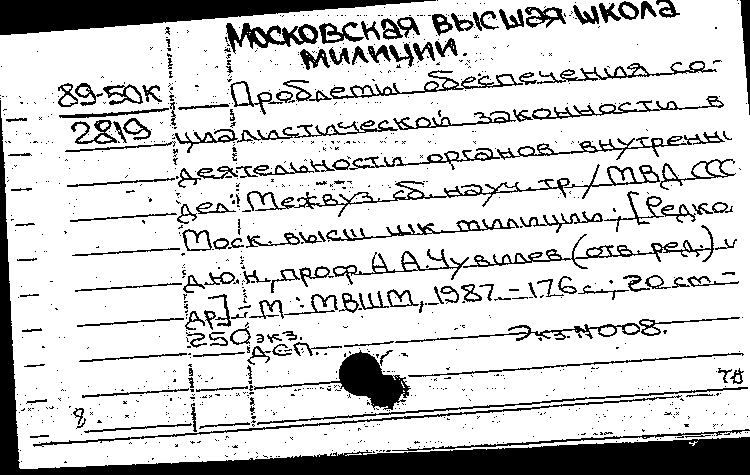 Московская высшая школа
милиции.
89-50К
2819
Проблемы обеспечения со-
циалистической законности в
деятельности органов внутренни
дел: Межвуз. сб. науч. тр. / МВД ССС
Моск. высш шк. милиции; [Редко
д.ю.н., проф. А.А.Чувилев (отв. ред.) и
др]. - М : МВШМ, 1987. - 176 с.; 20 см. -
250 экз.
ДСП.
Экз. №008.
8